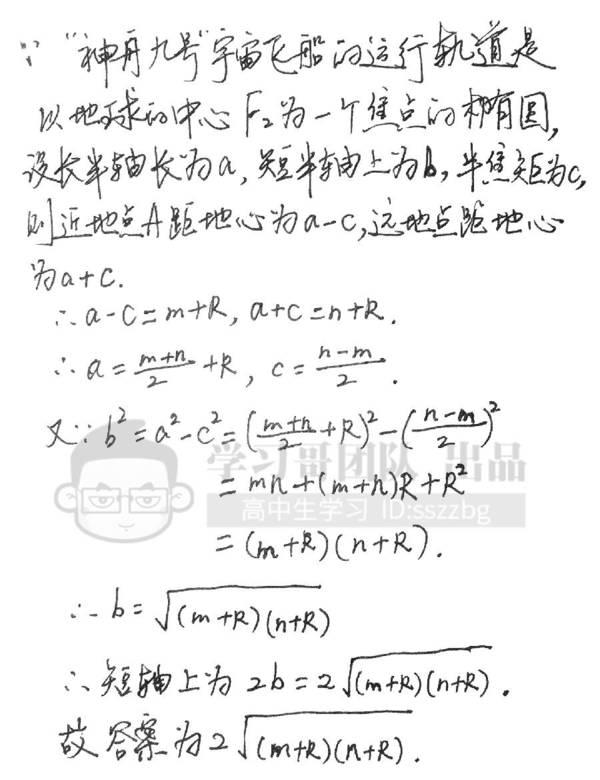 ∵ "神舟九号"宇宙飞船的运行轨道是
以地球的中心F₂为一个焦点的椭圆,
设长半轴长为a,短半轴上为b,半焦距为c,
则近地点A距地心为a-c,远地点距地心
为a+c.
∴ a-c=m+R, a+c=n+R.
∴ a=\frac{m+n}{2}+R, c=\frac{n-m}{2}.
又∵ b²=a²-c²=(\frac{m+n}{2}+R)²-(\frac{n-m}{2})²
学习哥团队 出品
=mn+(m+n)R+R²
高中生学习 ID:sszzbg
=(m+R)(n+R).
∴ b=√((m+R)(n+R))
∴ 短轴上为 2b=2√((m+R)(n+R)).
故答案为2√((m+R)(n+R)).